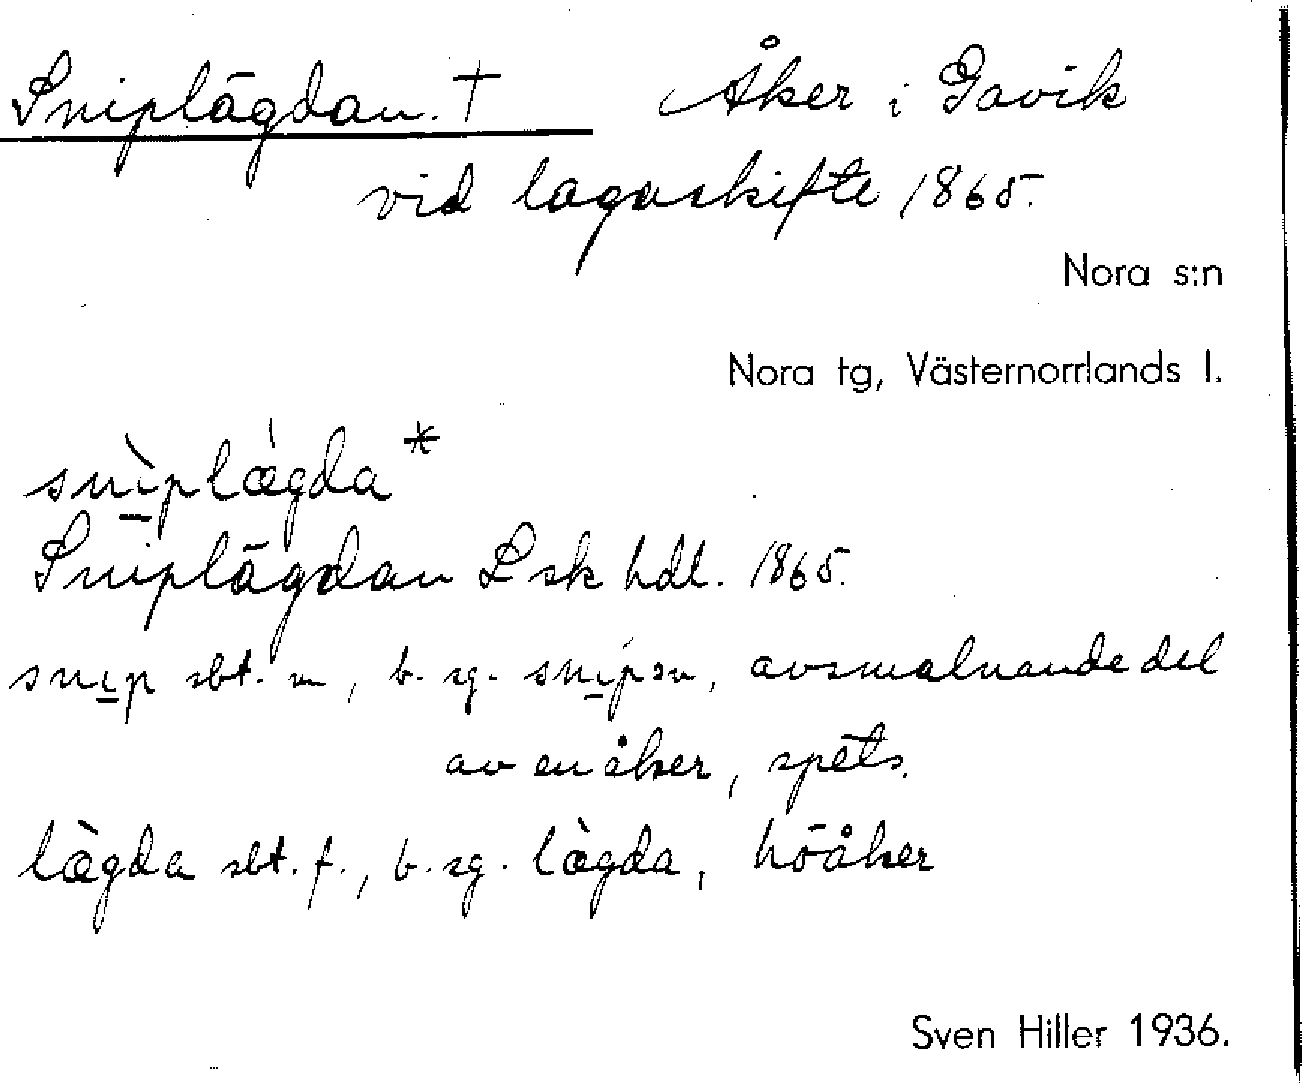 Sniplägdan. † Åker i Gavik
vid lagaskifte 1865.
Nora s:n
Nora tg, Västernorrlands l.
snì̱plæ̀gda*
Sniplägdan Lsk hdl. 1865.
sni̱p sbt. m, b. sg. sní̱pɜn, avsmalnande del
av en åker, spets.
læ̀gda sbt. f., b. sg. læ̀gda, höåker
Sven Hiller 1936.